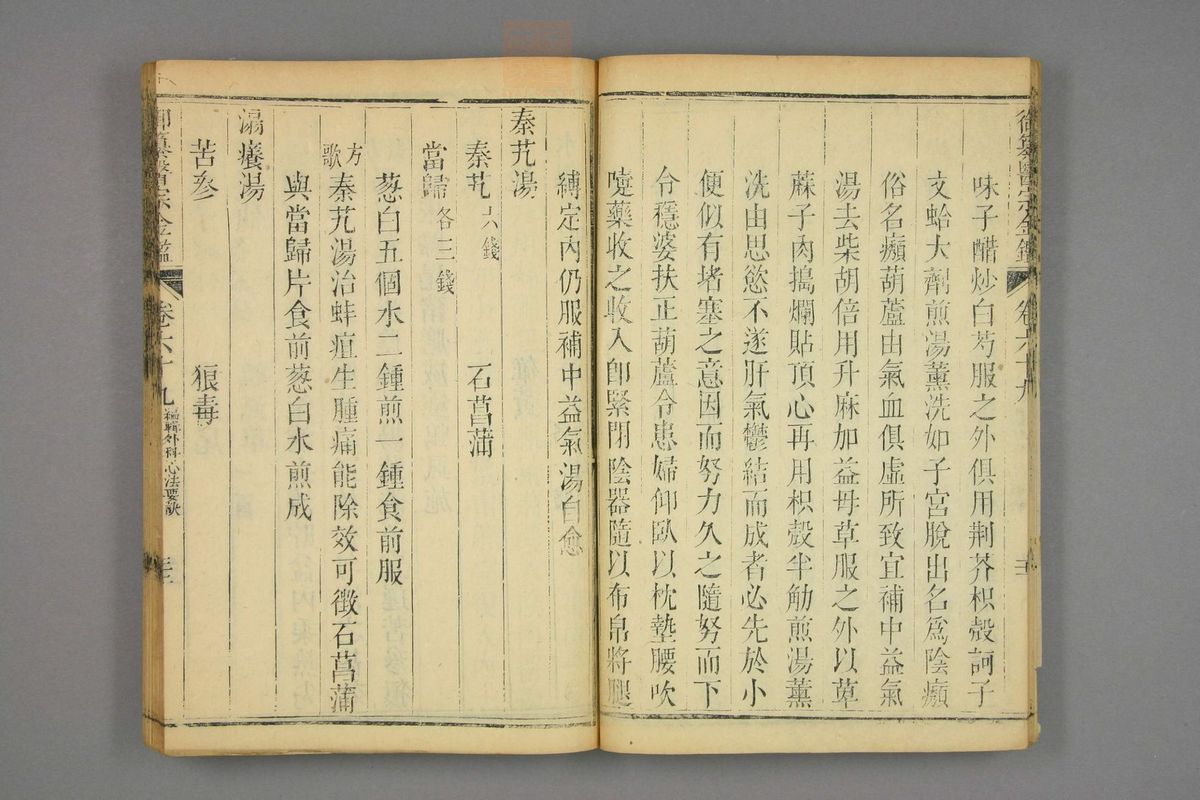 御纂醫宗金鑑 卷六十九
味子醋炒白芍服之外俱用荆芥枳殼訶子
文蛤大劑煎湯薰洗如子宮脫出名爲陰㿗
俗名㿗葫蘆由氣血俱虛所致宜補中益氣
湯去柴胡倍用升麻加益母草服之外以萆
蔴子肉搗爛貼頂心再用枳殼半觔煎湯薰
洗由思慾不遂肝氣鬱結而成者必先於小
便似有堵塞之意因而努力久之隨努而下
令穩婆扶正葫蘆令患婦仰臥以枕墊腰吹
嚏藥收之收入卽緊閉陰器隨以布帛將腿
縛定內仍服補中益氣湯自愈
秦艽湯
秦艽六錢 石菖蒲
當歸各三錢
葱白五個水二鍾煎一鍾食前服
方歌 秦艽湯治蚌疽生腫痛能除效可徵石菖蒲
與當歸片食前葱白水煎成
溻癢湯
苦參 狼毒
御纂醫宗金鑑 卷六十九 編輯外科心法要訣